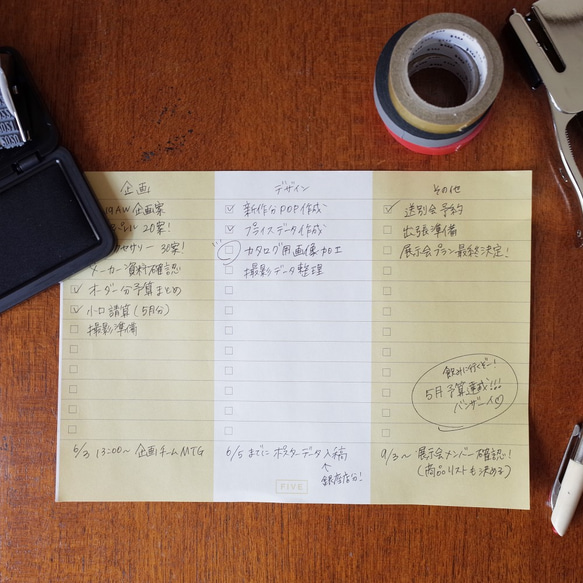 企画
19AW企画案
20案!
サリー 30案!
メーカー資料確認
オーダー分予算まとめ
小口請算(5月分)
撮影準備
6/3 13:00〜 企画チームMTG
デザイン
新作分POP作成
プライスデータ作成
カタログ用画像加工
撮影データ整理
6/5 までに ポスターデータ入稿
↑
銀座店分!
FIVE
その他
送別会予約
出張準備
展示会プラン最終決定!
飲みに行くぞー!
5月予算達成!!!
バンザーイ♡
9/3〜 展示会メンバー確認!
(商品リストも決める)